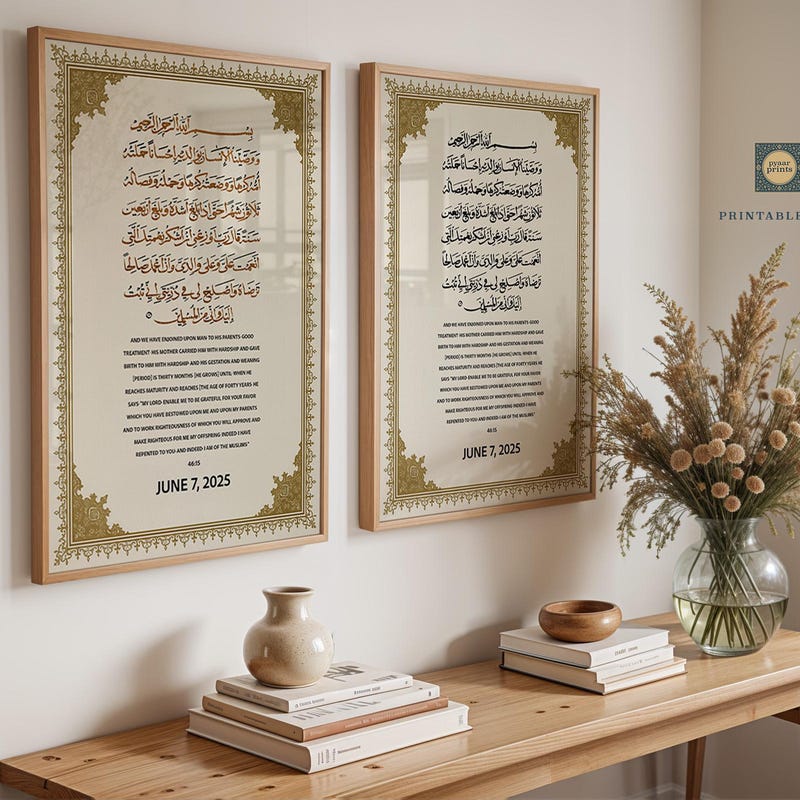 بِسْمِ اللهِ الرَّحْمٰنِ الرَّحِيْمِ
وَوَصَّيْنَا الْإِنْسَانَ بِوَالِدَيْهِ إِحْسَانًا حَمَلَتْهُ
أُمُّهُ كُرْهًا وَوَضَعَتْهُ كُرْهًا وَحَمْلُهُ وَفِصَالُهُ
ثَلَاثُوْنَ شَهْرًا حَتَّى إِذَا بَلَغَ أَشُدَّهُ وَبَلَغَ أَرْبَعِيْنَ
سَنَةً قَالَ رَبِّ أَوْزِعْنِيْ أَنْ أَشْكُرَ نِعْمَتَكَ الَّتِيْ
أَنْعَمْتَ عَلَيَّ وَعَلَى وَالِدَيَّ وَأَنْ أَعْمَلَ صَالِحًا
تَرْضَاهُ وَأَصْلِحْ لِيْ فِيْ ذُرِّيَّتِيْ إِنِّيْ تُبْتُ
إِلَيْكَ وَإِنِّيْ مِنَ الْمُسْلِمِيْنَ
AND WE HAVE ENJOINED UPON MAN TO HIS PARENTS-GOOD
TREATMENT· HIS MOTHER CARRIED HIM WITH HARDSHIP AND GAVE
BIRTH TO HIM WITH HARDSHIP· AND HIS GESTATION AND WEANING
[PERIOD] IS THIRTY MONTHS· [HE GROWS]· UNTIL· WHEN HE
REACHES MATURITY AND REACHES [THE AGE OF] FORTY YEARS· HE
SAYS· "MY LORD· ENABLE ME TO BE GRATEFUL FOR YOUR FAVOR
WHICH YOU HAVE BESTOWED UPON ME AND UPON MY PARENTS
AND TO WORK RIGHTEOUSNESS OF WHICH YOU WILL APPROVE AND
MAKE RIGHTEOUS FOR ME MY OFFSPRING· INDEED I HAVE
REPENTED TO YOU· AND INDEED· I AM OF THE MUSLIMS"
46:15
JUNE 7, 2025
بِسْمِ اللهِ الرَّحْمٰنِ الرَّحِيْمِ
وَوَصَّيْنَا الْإِنْسَانَ بِوَالِدَيْهِ إِحْسَانًا حَمَلَتْهُ
أُمُّهُ كُرْهًا وَوَضَعَتْهُ كُرْهًا وَحَمْلُهُ وَفِصَالُهُ
ثَلَاثُوْنَ شَهْرًا حَتَّى إِذَا بَلَغَ أَشُدَّهُ وَبَلَغَ أَرْبَعِيْنَ
سَنَةً قَالَ رَبِّ أَوْزِعْنِيْ أَنْ أَشْكُرَ نِعْمَتَكَ الَّتِيْ
أَنْعَمْتَ عَلَيَّ وَعَلَى وَالِدَيَّ وَأَنْ أَعْمَلَ صَالِحًا
تَرْضَاهُ وَأَصْلِحْ لِيْ فِيْ ذُرِّيَّتِيْ إِنِّيْ تُبْتُ
إِلَيْكَ وَإِنِّيْ مِنَ الْمُسْلِمِيْنَ
AND WE HAVE ENJOINED UPON MAN TO HIS PARENTS-GOOD
TREATMENT· HIS MOTHER CARRIED HIM WITH HARDSHIP AND GAVE
BIRTH TO HIM WITH HARDSHIP· AND HIS GESTATION AND WEANING
[PERIOD] IS THIRTY MONTHS· [HE GROWS]· UNTIL· WHEN HE
REACHES MATURITY AND REACHES [THE AGE OF] FORTY YEARS· HE
SAYS· "MY LORD· ENABLE ME TO BE GRATEFUL FOR YOUR FAVOR
WHICH YOU HAVE BESTOWED UPON ME AND UPON MY PARENTS
AND TO WORK RIGHTEOUSNESS OF WHICH YOU WILL APPROVE AND
MAKE RIGHTEOUS FOR ME MY OFFSPRING· INDEED I HAVE
REPENTED TO YOU· AND INDEED· I AM OF THE MUSLIMS"
46:15
JUNE 7, 2025
pyaar
prints
PRINTABLE